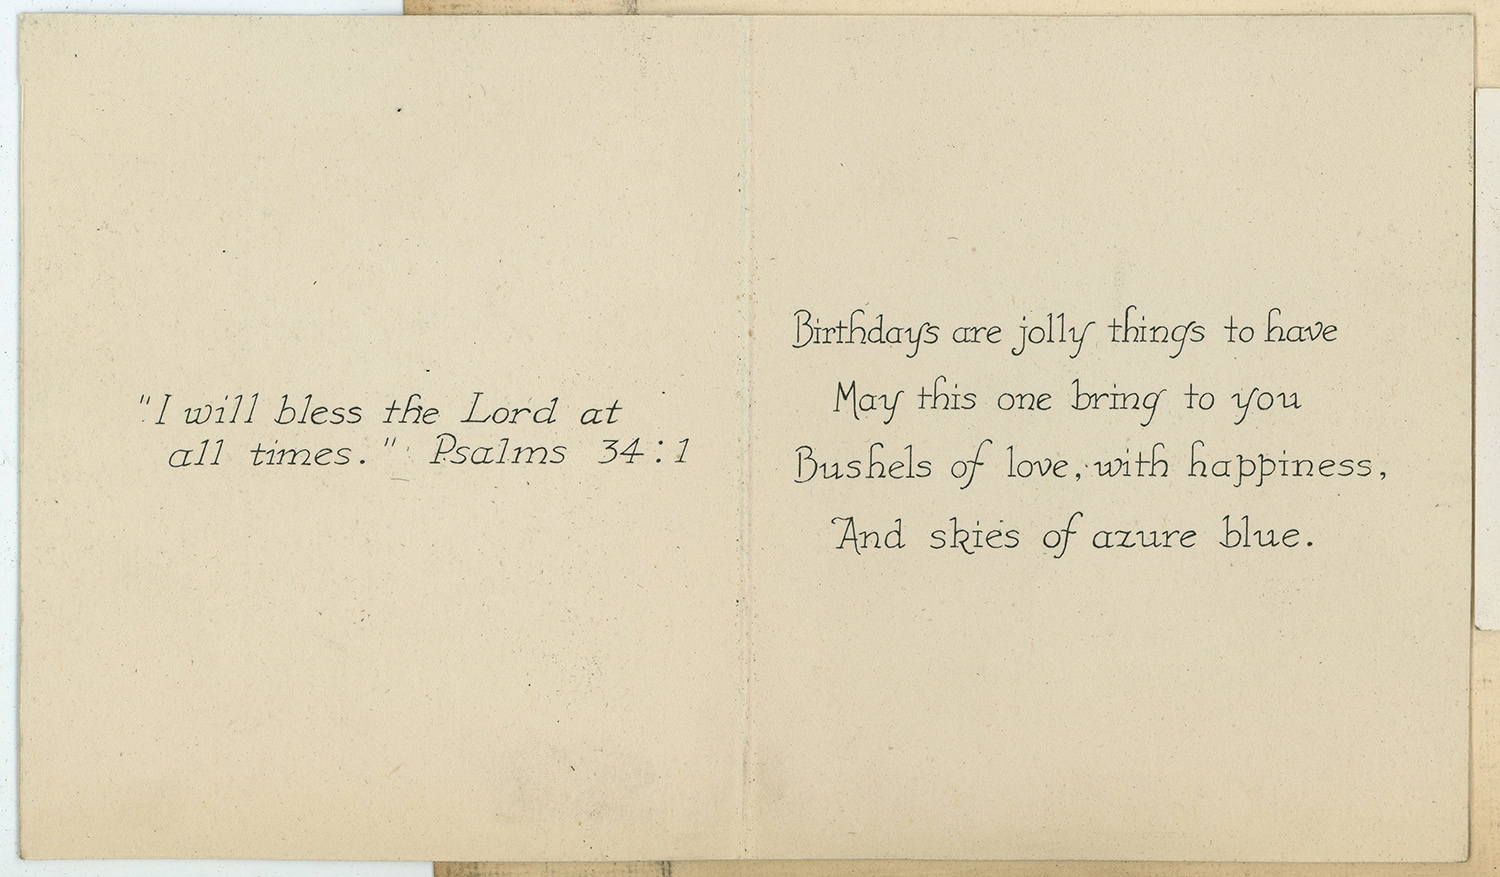 "I will bless the Lord at
all times." Psalms 34:1
Birthdays are jolly things to have
May this one bring to you
Bushels of love, with happiness,
And skies of azure blue.